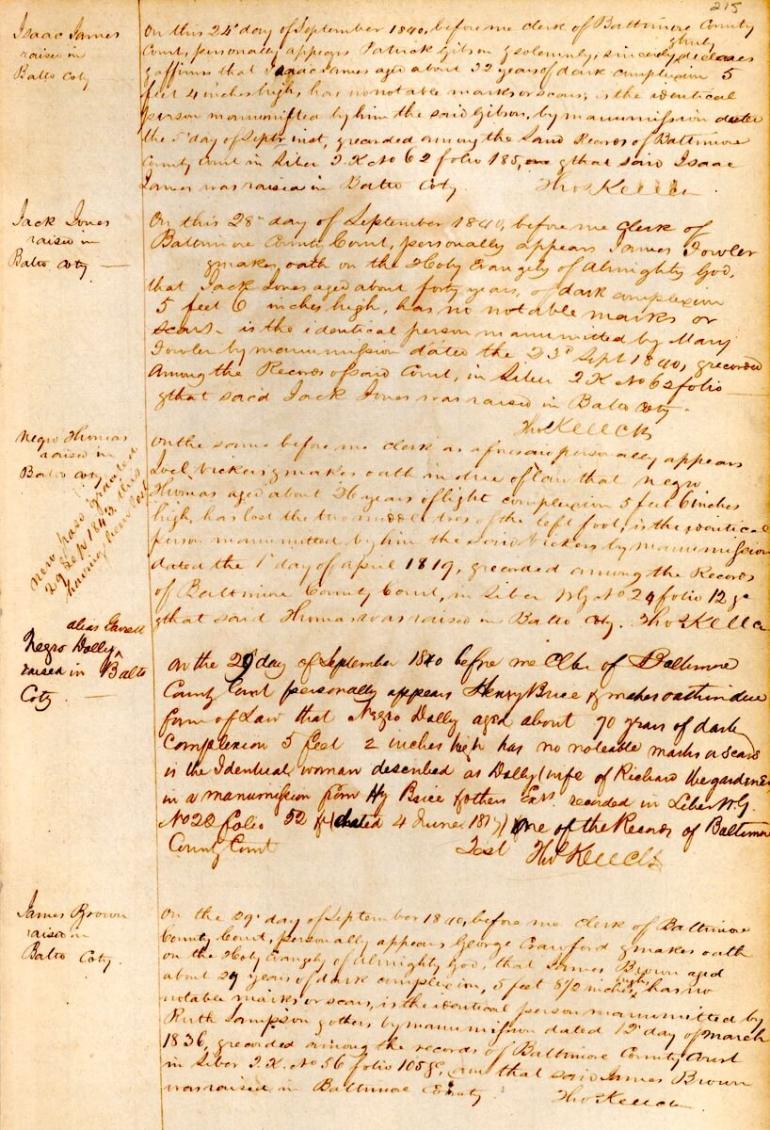 215
Isaac James
raised in
Balto Coty
On this 24th day of September 1840, before me clerk of Baltimore County
Court, personally appears Patrick Gibson & solemnly, sincerely & truly declares
& affirms that Isaac James aged about 32 years of dark complexion 5
feet 4 inches high, has no notable marks or scars, is the identical
person manumitted by him the said Gibson, by manumission dated
the 5th day of Septr inst, & recorded among the Land Records of Baltimore
County Court in Liber T.K. No 62 folio 185, & that said Isaac
James was raised in Balto Coty. Thos Kell Clk
Jack Jones
raised in
Balto Coty
On this 28th day of September 1840, before me Clerk of
Baltimore County Court, personally appears James Fowler
& makes oath on the Holy Evangely of Almighty God,
that Jack Jones aged about forty years, of dark complexion
5 feet 6 inches high, has no notable marks or
scars - is the identical person manumitted by Mary
Fowler by manumission dated the 23d Sept 1840, & recorded
Among the Records of said Court, in Liber T.K. No 62 folio
& that said Jack Jones was raised in Balto Coty.
Thos Kell Clk
Negro Thomas
raised in
Balto Coty
new pass granted
29 Sep 1843 this
having been lost
On the same before me clerk as aforesaid personally appears
Joel Vickers & makes oath in due of law that negro
Thomas aged about 26 years of light complexion 5 feet 6 inches
high, has lost the two middle toes of the left foot, is the identical
person manumitted by him the said Vickers by manumission
dated the 1st day of April 1819, & recorded among the Records
of Baltimore County Court, in Liber W.G. No 24 folio 12 &c
& that said Thomas was raised in Balto Coty. Thos Kell Clk
alias
Negro Dolly
raised in Balto
Coty
On the 29 day of September 1840 before me Clk of Baltimore
County Court personally appears Henry Brice & makes oath in due
form of Law that Negro Dolly aged about 70 years of dark
Complexion 5 feet 2 inches high has no noteable marks or Scars
is the Identical woman described as Dolly (wife of Richard the gardener
in a manumission from Hy Brice & others Exrs. recorded in Liber W.G.
No 20 folio 52 &c (dated 4 June 1817) One of the Records of Baltimore
County Court Test Thos Kell Clk
James Brown
raised in
Balto Coty.
On the 29th day of September 1840, before me clerk of Baltimore
County Court, personally appears George Crawford & makes oath
on the Holy Evangely of Almighty God, that James Brown aged
about 29 years of dark complexion, 5 feet 8 1/2 inches high, has no
notable marks or scars, is the identical person manumitted by
Ruth Sampson & others by manumission dated 12th day of March
1836, & recorded among the records of Baltimore County Court
in Liber T.K. No 56 folio 105 &c, and that said James Brown
was raised in Baltimore County. Thos Kell Clk